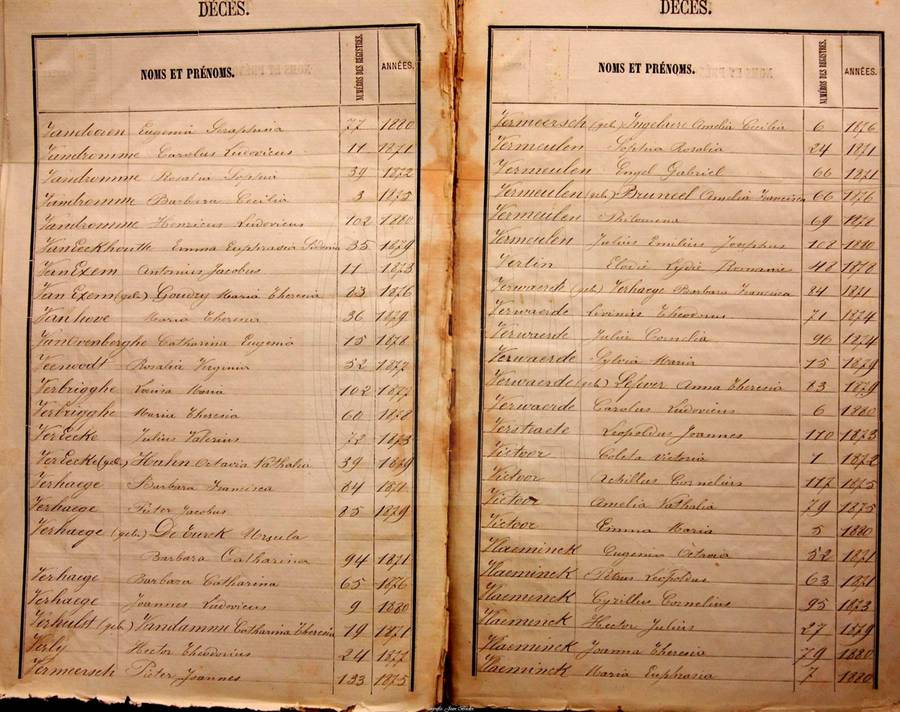 DÉCÈS.
NOMS ET PRÉNOMS. NUMÉROS DES REGISTRES. ANNÉES.
Eugenia Seraphina 77 1880
Vandromme Carolus Ludovicus 11 1871
Vandromme Rosalia Sophia 39 1872
Vandromme Barbara Cecilia 3 1875
Vandromme Henricus Ludovicus 102 1880
VanEeckhoutte Emma Euphrasia Sidonia 35 1879
VanExem Antonius Jacobus 11 1873
Van Exem (geb.) Goudry Maria Theresia 23 1876
Maria Theresia 36 1879
VanOvenberghe Catharina Eugenia 15 1878
Rosalia Virginia 52 1877
Verbrigghe Louisa Maria 102 1877
Verbrigghe Maria Theresia 60 1878
VerEecke Julius Valerius 72 1873
VerEecke (geb.) Hahn Octavia Nathalia 39 1879
Verhaege Barbara Francisca 84 1871
Verhaege Pieter Jacobus 25 1879
Verhaege (geb.) Ursula
Barbara Catharina 94 1871
Verhaege Barbara Catharina 65 1876
Verhaege Joannes Ludovicus 9 1880
Verhulst (geb.) Vandamme Catharina Theresia 19 1871
Verly Hector Theodorius 24 1877
Vermeersch Pieter Joannes 133 1875
DÉCÈS.
NOMS ET PRÉNOMS. NUMÉROS DES REGISTRES. ANNÉES.
Vermeersch (geb.) Ingelaere Amelia Cecilia 6 1876
Vermeulen Sophia Rosalia 24 1871
Vermeulen Engel Gabriel 66 1871
Vermeulen (geb.) Bruneel Amelia Francisca 66 1876
Vermeulen Philomena 69 1878
Vermeulen Julius Emilius Josephus 102 1880
Vertin Elodie Lydie Romanie 48 1878
Verwaerde (geb.) Verhaege Barbara Francisca 24 1871
Verwaerde Livinus Theodorus 71 1874
Verwaerde Julia Cornelia 96 1874
Verwaerde Sylvia Maria 15 1879
Verwaerde (geb.) Lefever Anna Theresia 23 1879
Verwaerde Carolus Ludovicus 6 1880
Verstraete Leopoldus Joannes 110 1873
Victoor Coleta Victoria 7 1872
Victoor Achilles Cornelius 117 1875
Victoor Amelia Nathalia 79 1875
Victoor Emma Maria 5 1880
Vlaeminck Eugenia Octavia 52 1871
Vlaeminck Petrus Leopoldus 63 1871
Vlaeminck Cyrillus Cornelius 95 1873
Vlaeminck Hector Julius 27 1879
Vlaeminck Joanna Theresia 79 1880
Vlaeminck Maria Euphrasia 7 1880